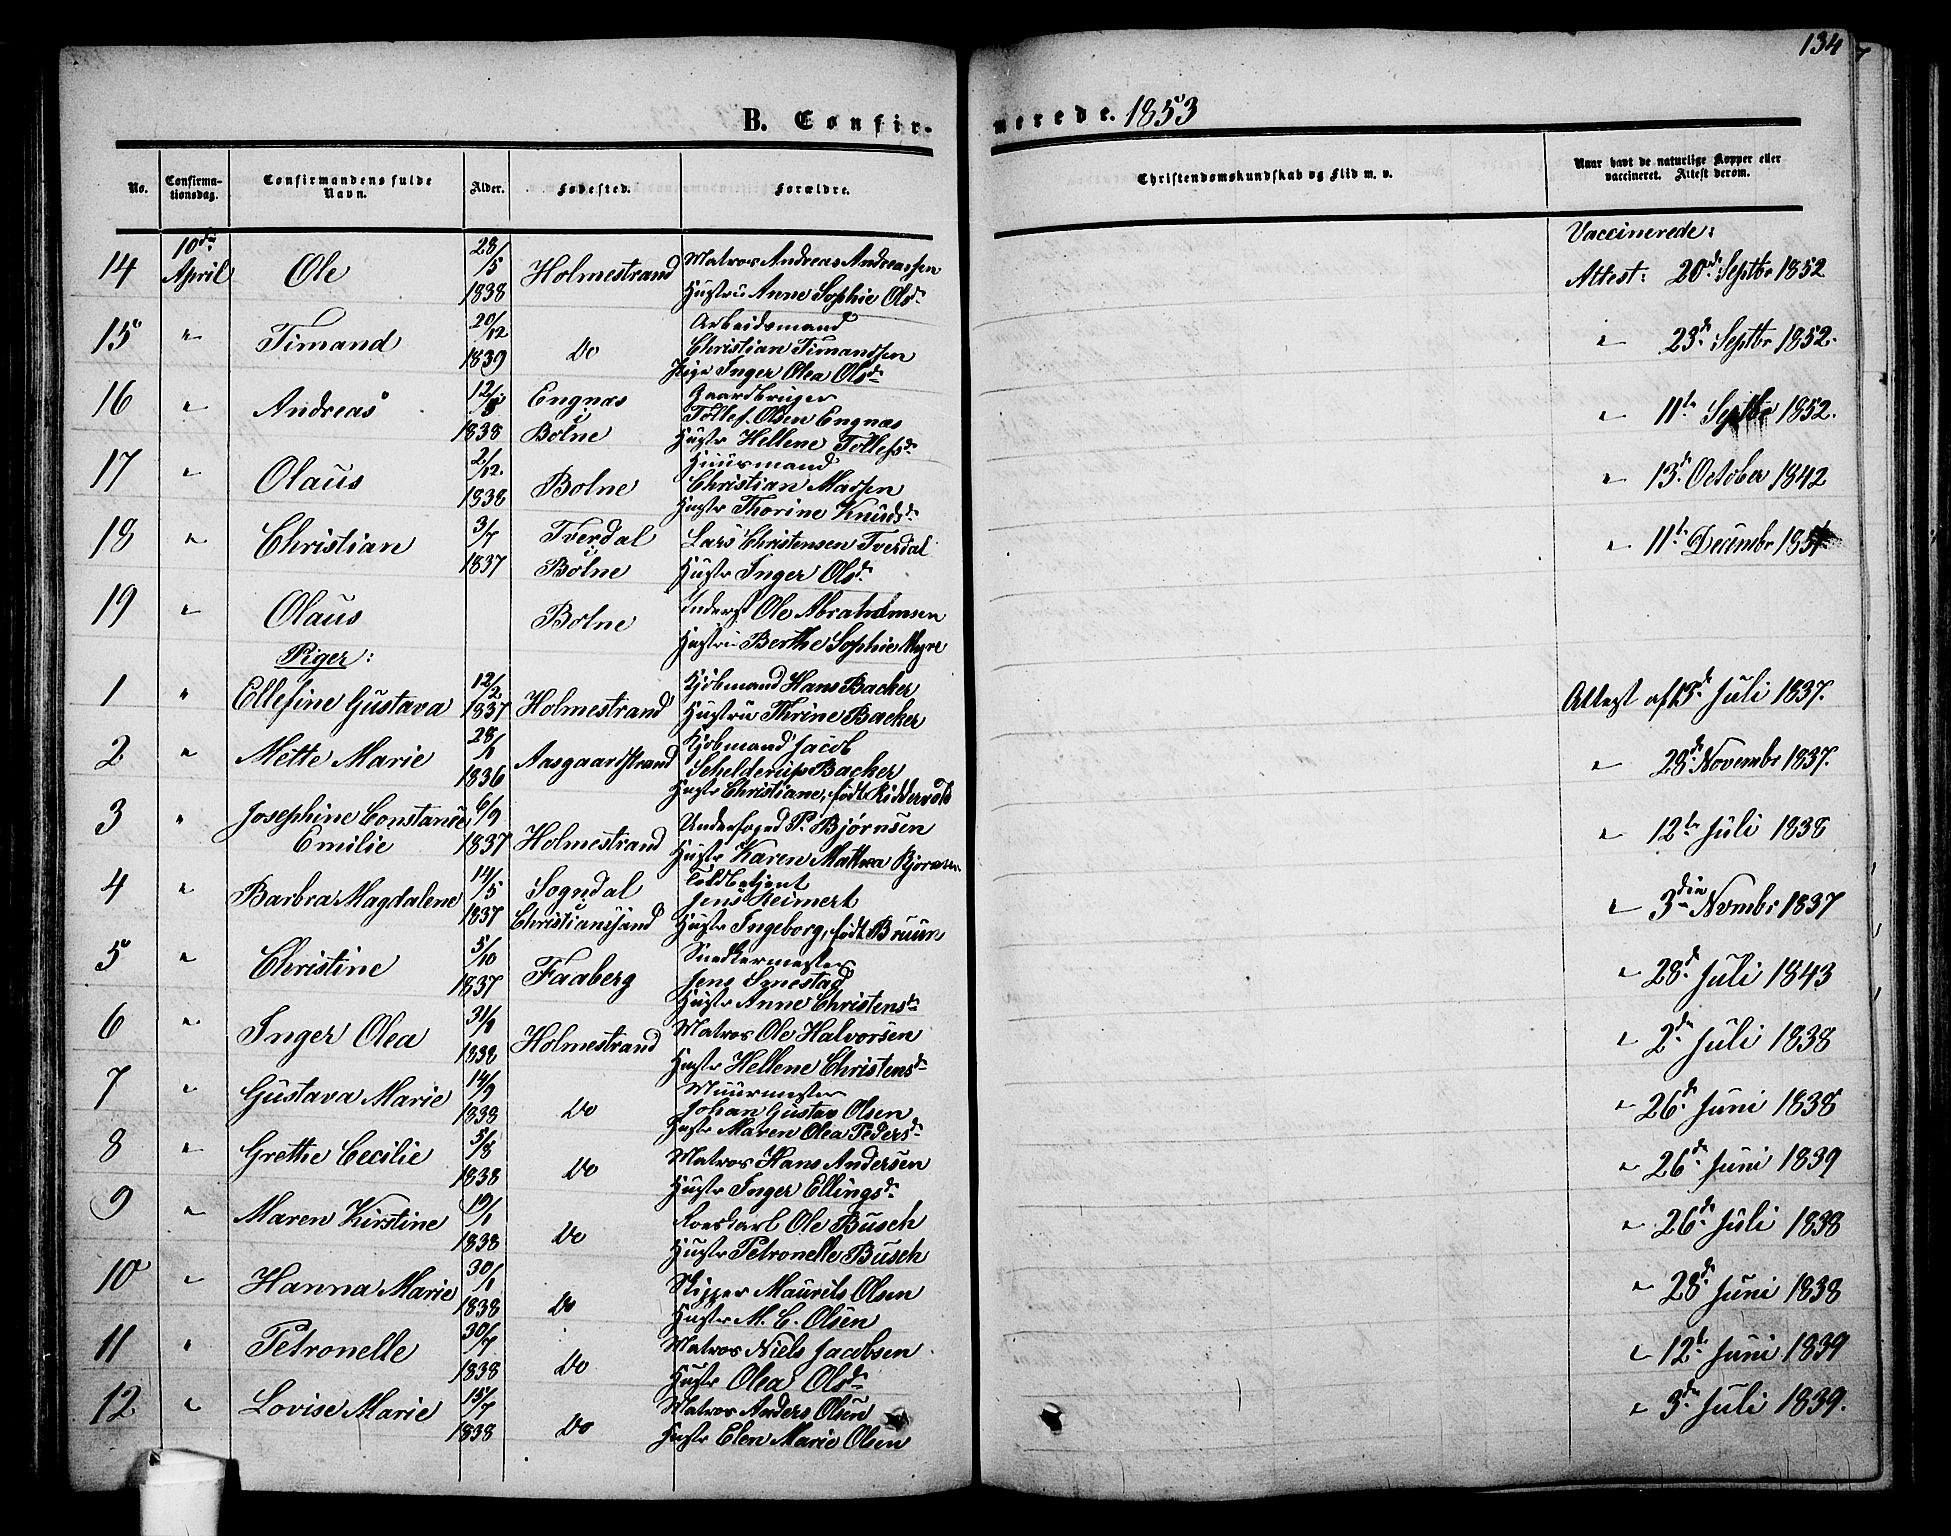 134
B. Confirmerede. 1853
No. Confirmationsdag. Confirmandens fulde Navn. Alder. Fødested. Forældre. Christendomskundskab og Flid m. v. Naar havt de naturlige Kopper eller vaccineret. Attest derom.
Vaccinerede:
14 10de April Ole 28/5 1838 Holmestrand Matros Andreas Andreassen Hustru Anne Sophie Olsdr Attest: 20de Septbr 1852
15 " Timand 20/12 1839 Do Arbeidsmand Christian Timandsen Pige Inger Olea Olsdr " 23de Septbr 1852.
16 " Andreas 12/8 1838 Engnæs Botne Gaardbruger Tollef Olsen Engnæs Hustr Hellene Tollefsdr " 11te Septbr 1852.
17 " Olaus 2/12 1838 Botne Huusmand Christian Madsen Hustr Thorine Knudsdr " 13de October 1842
18 " Christian 3/7 1837 Tverdal Botne Lars Christensen Tverdal Hustr Inger Olsdr " 11te Decembr
19 " Olaus Botne Inderst Ole Abrahamsen Hustru Berthe Sophie Myre
Piger:
1 " Ellefine Gustava 12/2 1837 Holmestrand Kjøbmand Hans Backer Hustru Thrine Backer Attest af Juli 1837.
2 " Mette Marie 28/1 1836 Aasgaardstrand Kjøbmand Jacob Schelderup Backer Hustr Christiane, født Riddervold " 28de Novembr 1837.
3 " Josephine Constance Emilie 6/9 1837 Holmestrand Underfoged P. Bjørnsen Hustr Karen Mathea Bjørnsen " 12te Juli 1838
4 " Barbra Magdalene 14/5 1837 Sogndal Christianssand Toldbetjent Jens Reimert Hustr Ingeborg, født Bruun " 3die Novmbr 1837
5 " Christine 5/10 1837 Faaberg Snedkermester Jens Smestad Hustr Anne Christensdr " 28de Juli 1843
6 " Inger Olea 31/1 1838 Holmestrand Matros Ole Halvorsen Hustr Hellene Christensdr " 2den Juli 1838
7 " Gustava Marie 14/9 1838 Do Muurmester Johan Gustav Olsen Hustr Maren Olea Pedersdr " 26de Juni 1838
8 " Grethe Cecilie 5/8 1838 Do Matros Hans Andersen Hustr Inger Ellingsdr " 26de Juni 1839
9 " Maren Kirstine 19/1 1838 Do Roeskarl Ole Busch Hustr Petronelle Busch " 26de Juli 1838
10 " Hanna Marie 30/1 1838 Do Skipper Maurits Olsen Hustr M. C. Olsen " 28de Juni 1838
11 " Petronelle 30/7 1838 Do Matros Niels Jacobsen Hustr Olea Olsdr " 12te Juni 1839
12 " Lovise Marie 15/7 1838 Do Matros Anders Olsen Hustr Elen Marie Olsen " 3de Juli 1839.